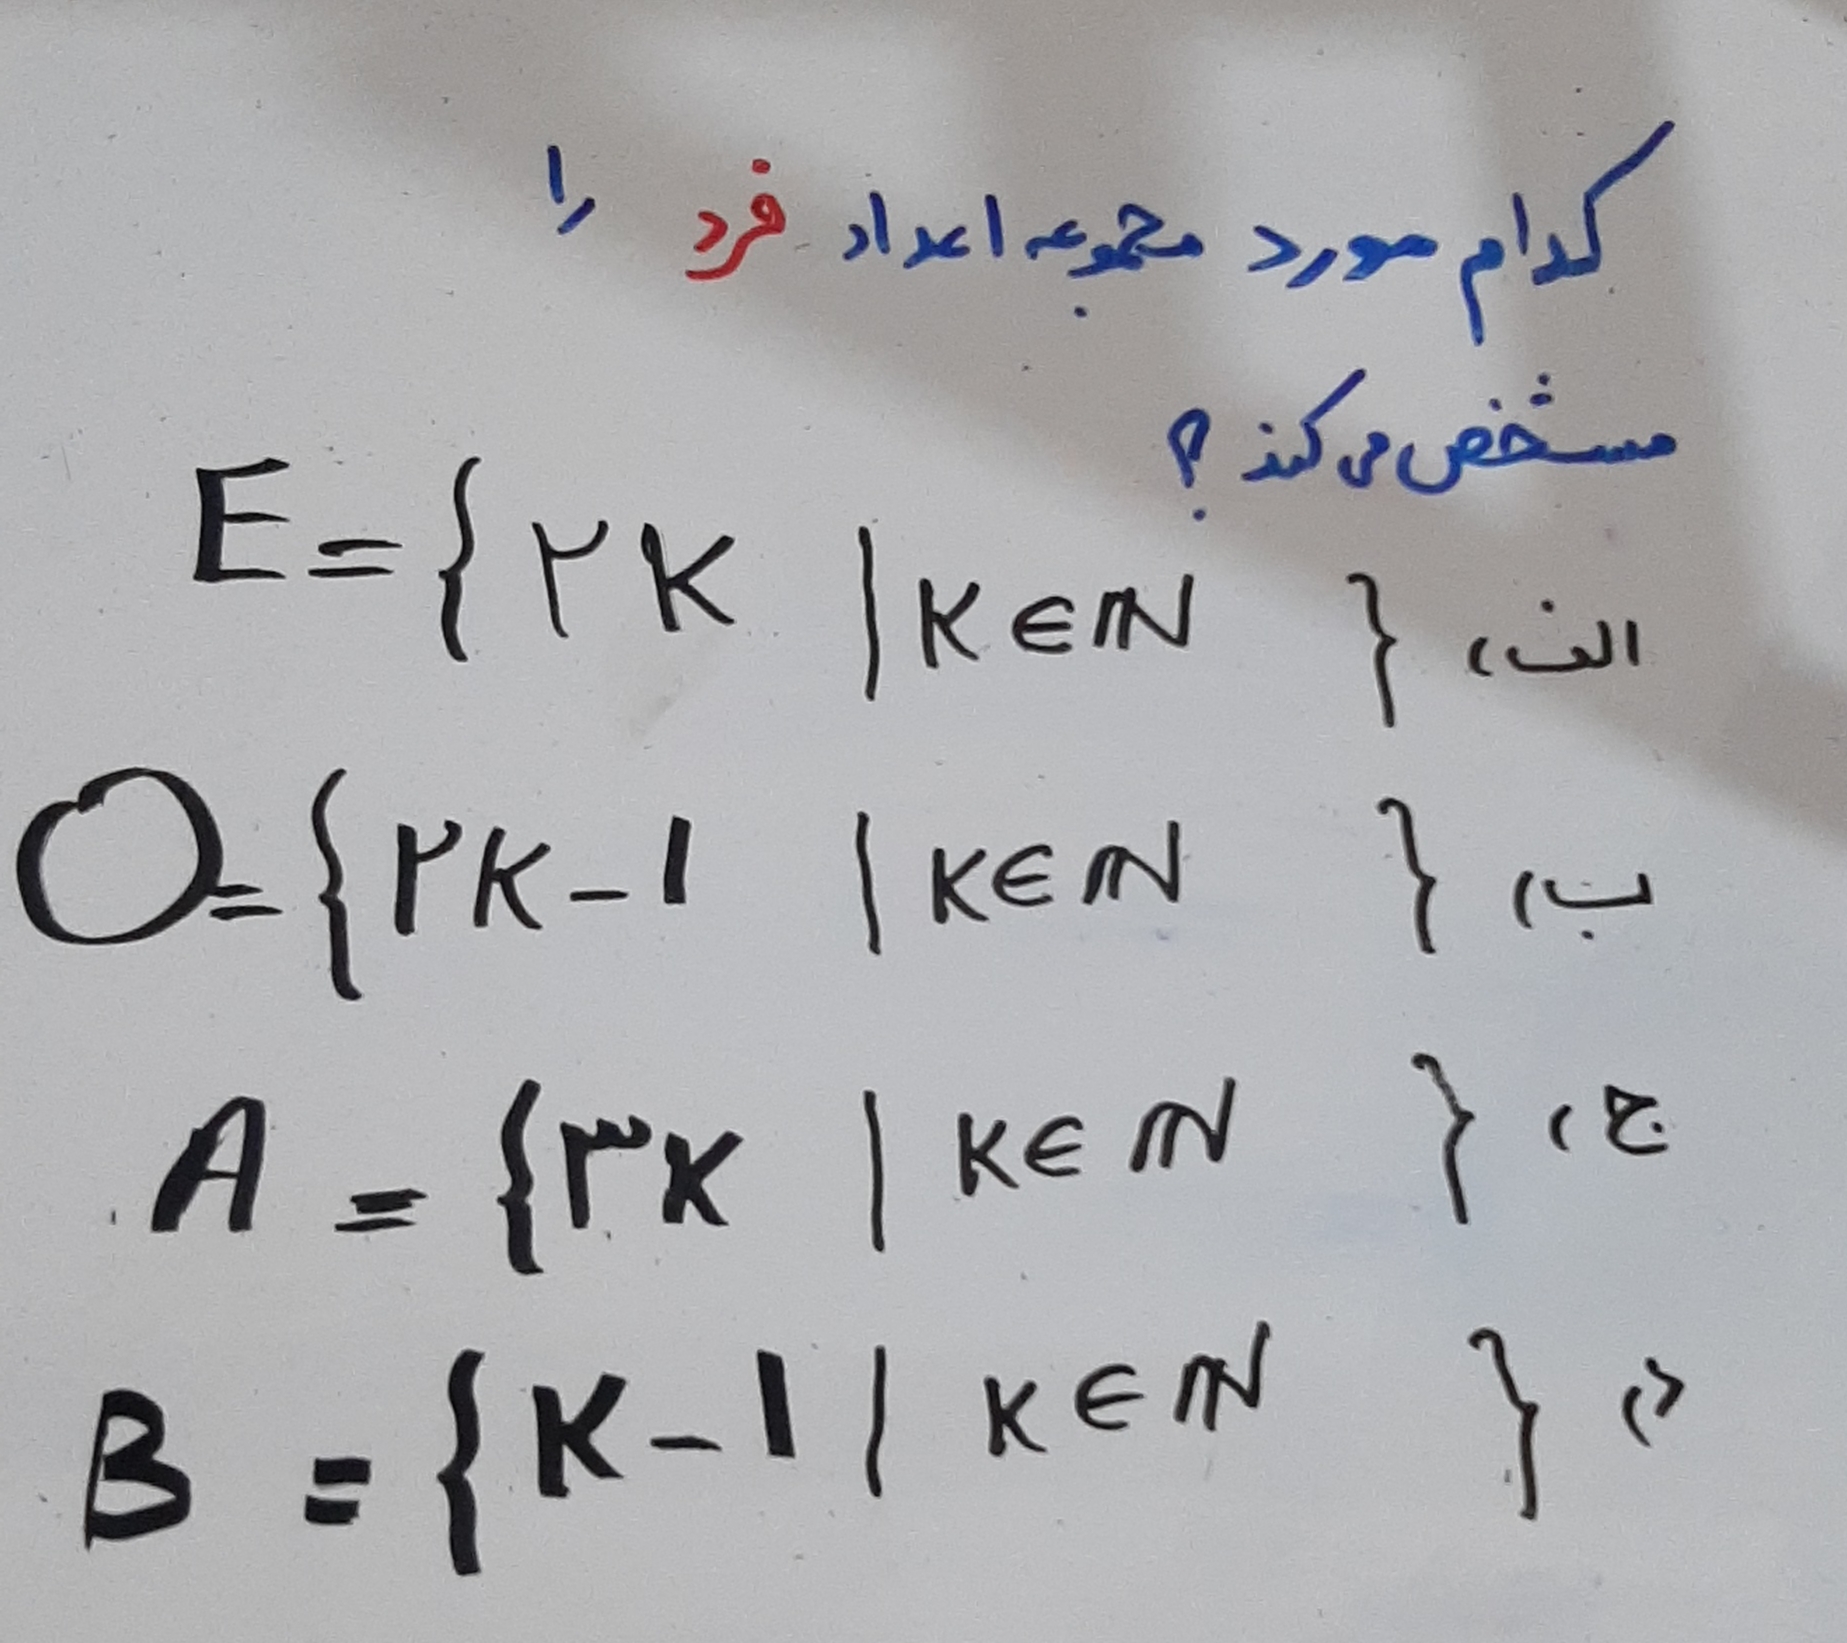 کدام مورد مجموعه اعداد فرد را
مشخص می کند ؟
الف) E = { ۲K | K ∈ ℕ }
ب) O = { ۲K - ۱ | K ∈ ℕ }
ج) A = { ۳K | K ∈ ℕ }
د) B = { K - ۱ | K ∈ ℕ }